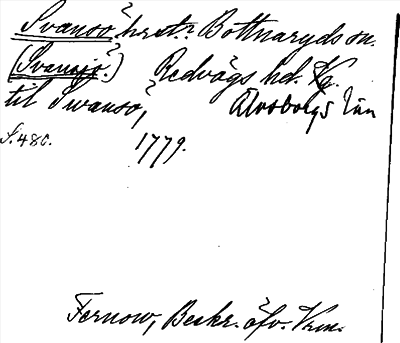 Svansö? hrst? Bottnaryds sn.
(Svansjö?) Redvägs hd. Vg.
til Swansö,? Älvsborgs län
S. 480. 1779.
Fernow, Beskr. öfv. Vrm.